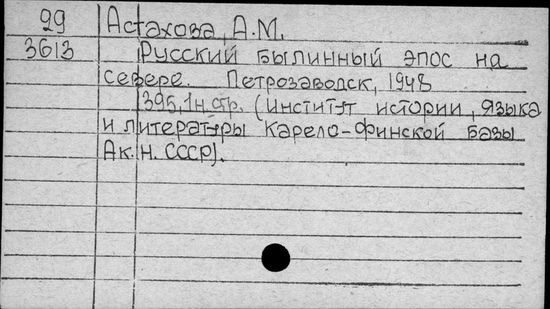 99 Астахова, А.М.
3613 Русский былинный эпос на
севере. Петрозаводск, 1948
395,1н.стр. (Институт истории, языка
и литературы Карело-финской базы
Ак. н. СССР).